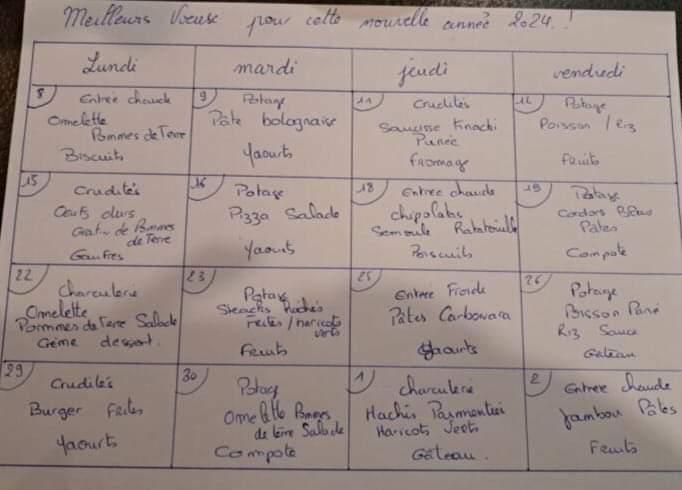 Meilleurs Voeuse pour cette nouvelle année 2024.!
Lundi mardi jeudi vendredi
8 Entrée chaude
Omelette
Pommes de Terre
Biscuits
9 Potage
Pâte bolognaise
Yaourts
11 Crudités
Saucisse Knacki
Purée
Fromage
12 Potage
Poisson / Riz
Fruits
15 Crudités
Oeufs durs
Gratin de Pommes
de Terre
Gaufres
16 Potage
Pizza Salade
Yaourts
18 Entrée chaude
chipolatas
Semoule Ratatouille
Biscuits
19 Potage
Cordons Bleus
Pâtes
Compote
22 Charcuterie
Omelette
Pommes de Terre Salade
Crème dessert.
23 Potage
Steacks Hachés
Frites / haricots
verts
Fruits
25 Entrée Froide
Pâtes Carbonara
Yaourts
26 Potage
Poisson Pané
Riz Sauce
Gâteau
29 Crudités
Burger Frites
Yaourts
30 Potage
Omelette Pommes
de terre Salade
Compote
1 Charcuterie
Hachis Parmentier
Haricots Verts
Gâteau.
2 Entrée chaude
Jambon Pâtes
Fruits